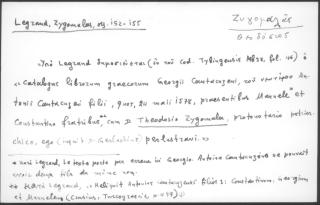 Legrand, Zygomalas, σσ. 152-155
Ζυγομαλᾶς
Θεοδόσιος
Ὑπὸ Legrand δημοσιεύεται (ἐκ τοῦ Cod. Tybingensis Mb 37, fol. 116) ὁ
"Catalogus librorum graecorum Georgii Cantacuzeni, τοῦ νεωτέρου An-
tonii Cantacuzeni filii, quos, 22 maii 1578, praesentibus Manuele* et
Constantino fratribus**, cum D. Theodosio Zygomala, protonotario patriar-
chico, ego (inquit S. Gerlachius) perlustravi."
* κατὰ Legrand, Le texte porte par erreur ici Georgio. Antoine Cantacuzène ne pouvait
avoir deux fils du même nom.
** Κατὰ Legrand, "Reliquit Antonius Cantacuzenus filios 3: Constantinum, Georgium
et Manuelem (Crusius, Turcograecia, σ. 497)."